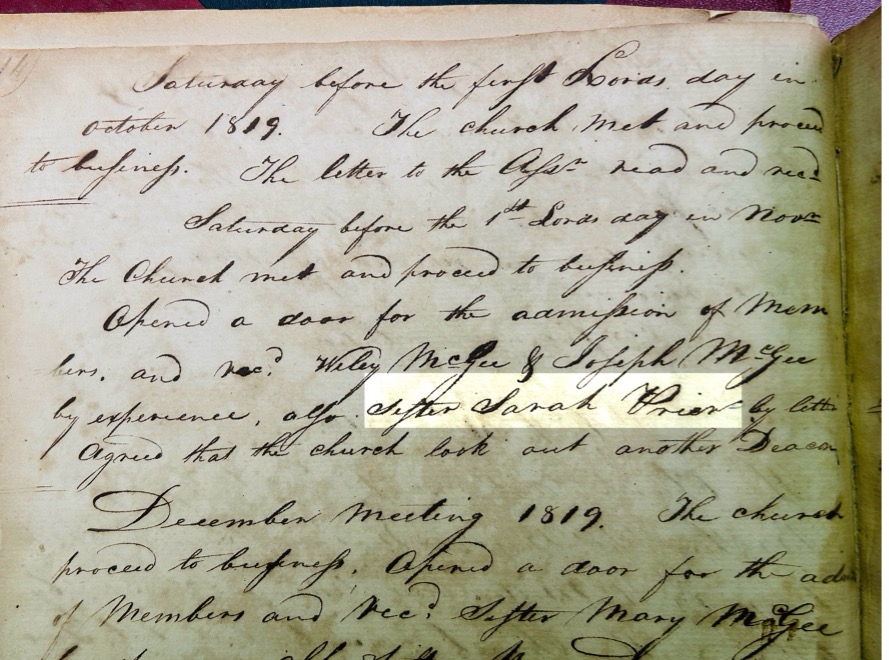 Saturday before the first Lords day in
october 1819. The church met and proceed
to business. The letter to the Assn read and recd
Saturday before the 1st Lords day in Novr
The Church met and proceed to business.
Opened a door for the admission of Mem
bers. and recd Wiley McGee & Joseph McGee
by experience, also Sister Sarah Prior by lette
Agreed that the church look out another Deacon
December meeting 1819. The church
proceed to business. Opened a door for the ad
of Members and recd Sister Mary McGee